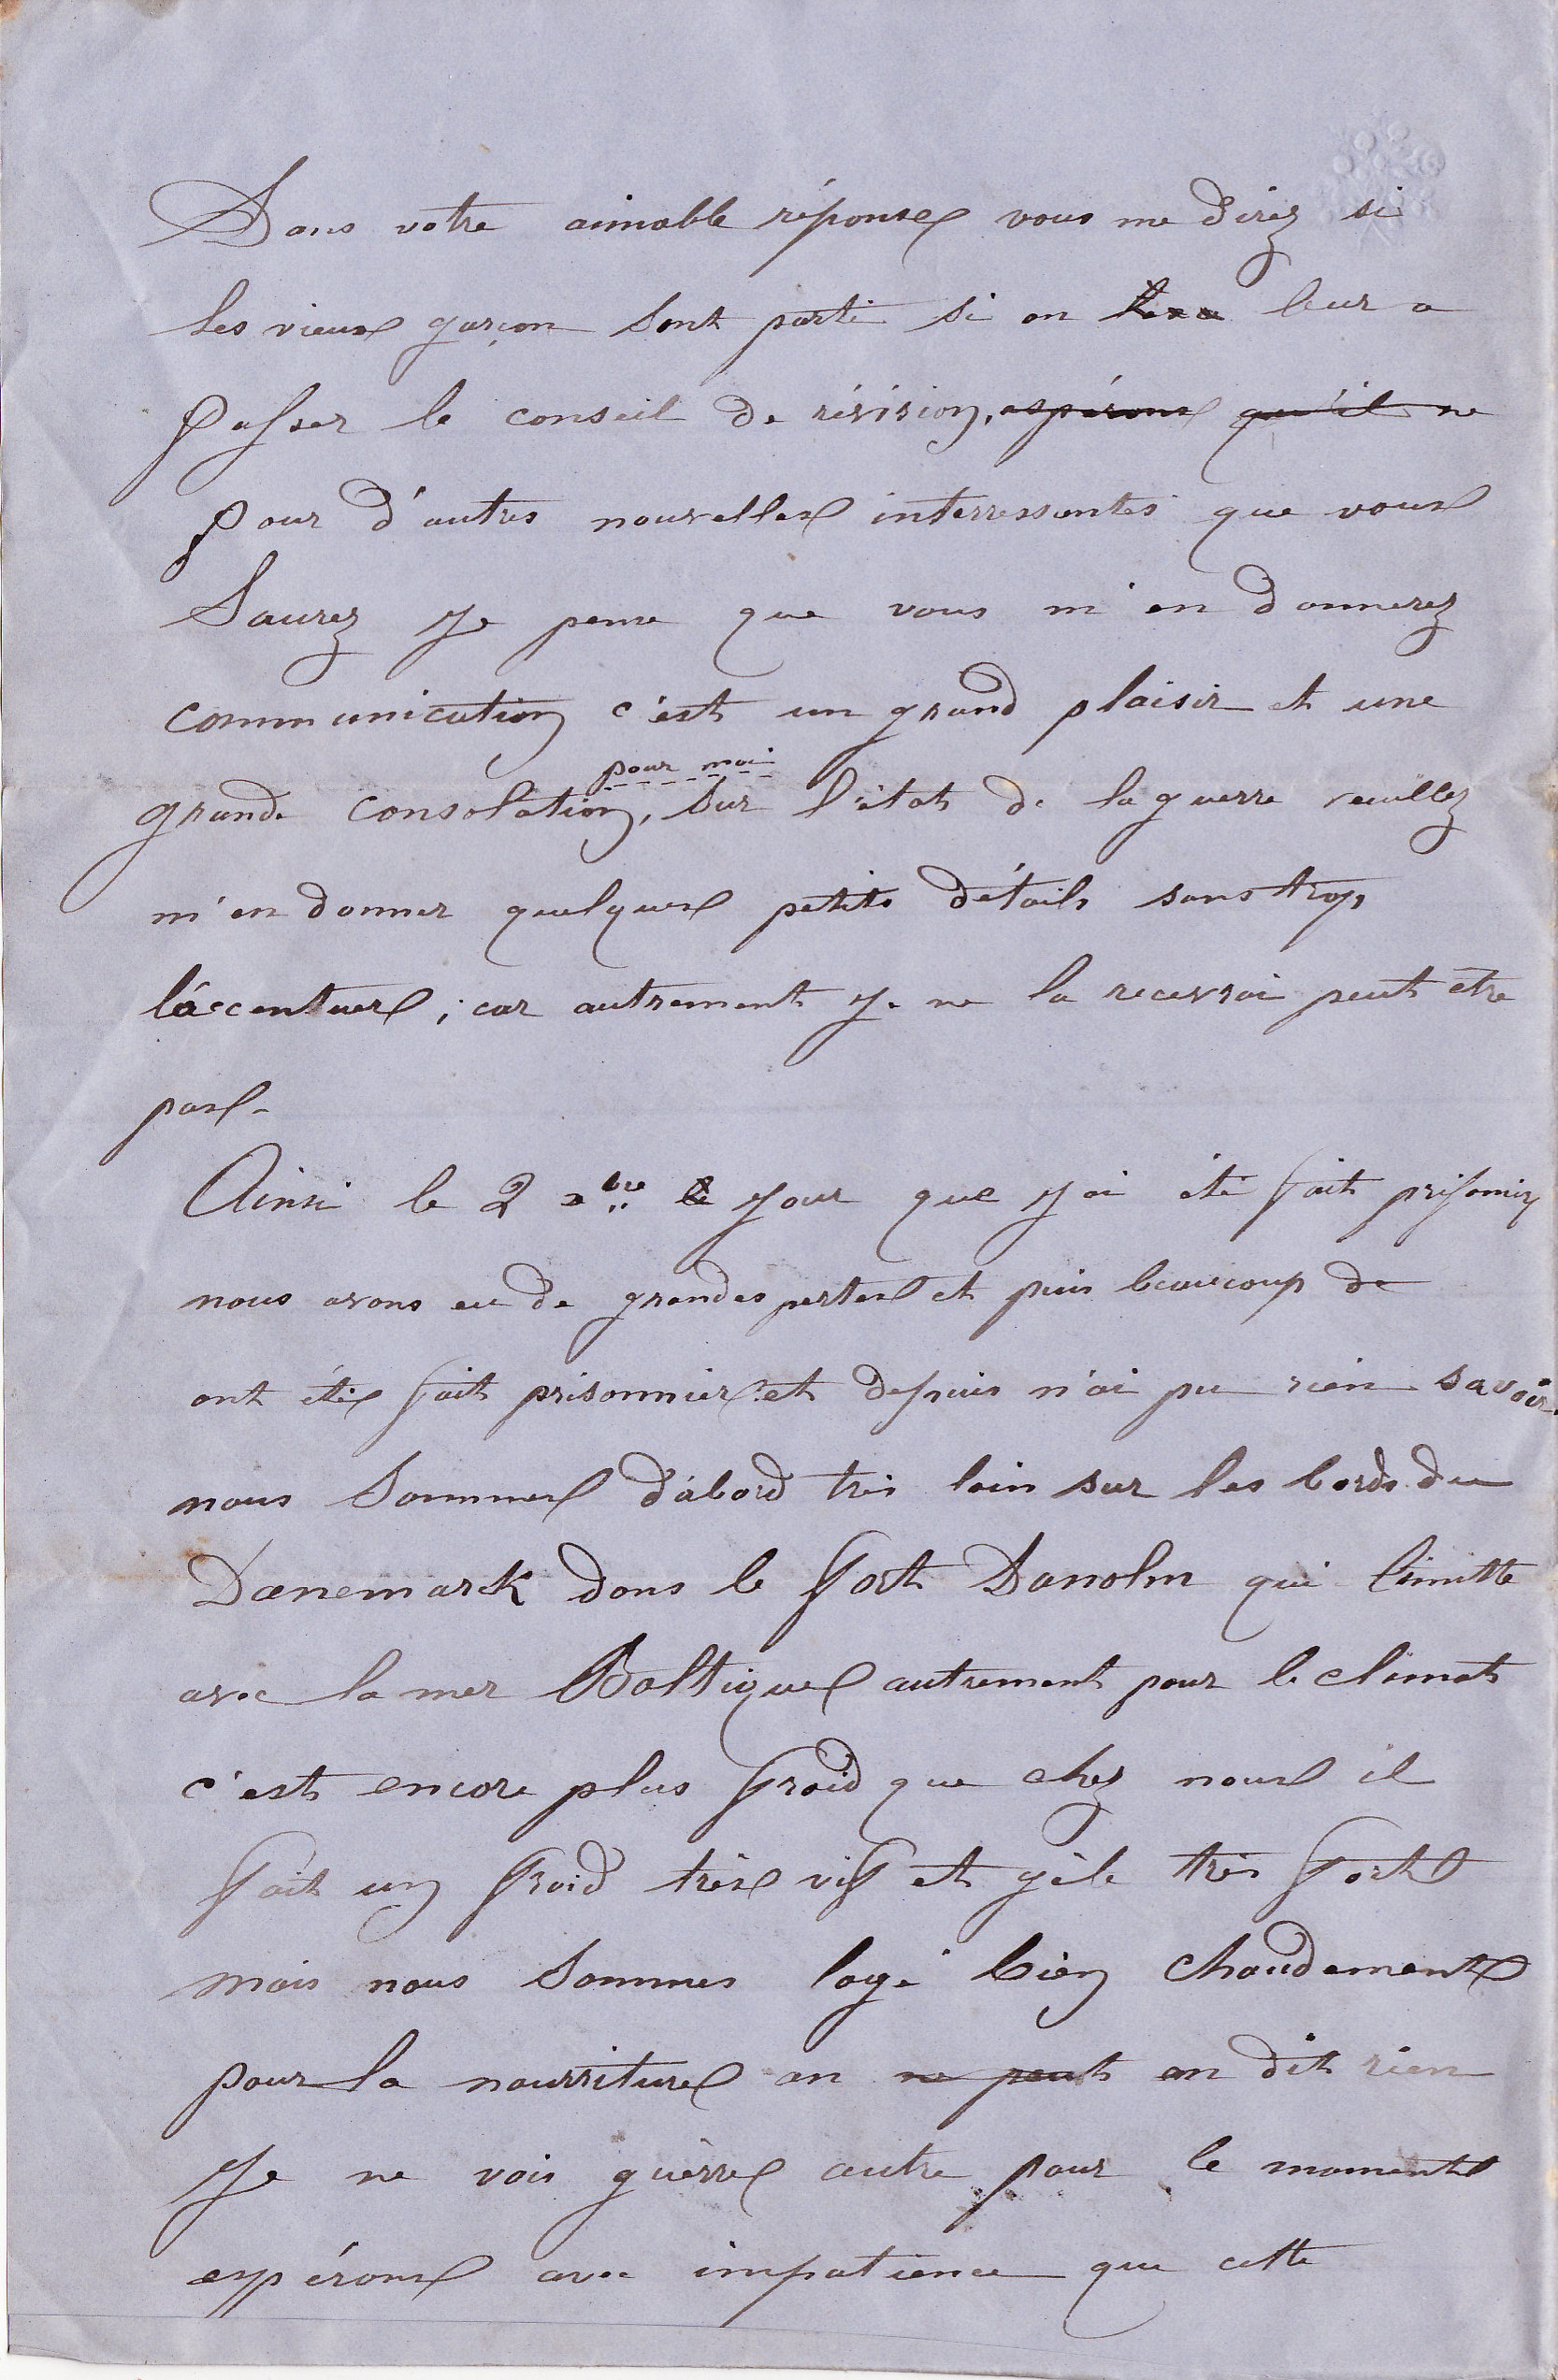 Dans votre aimable réponse vous me direz si
les vieux garçon sont parti si on leur a
passer le conseil de révision, espérons qu'il ne
pour d'autres nouvelles interressentes que vous
saurez je pense que vous m'en donnerez
communication c'est un grand plaisir et une
pour moi
grande consolation, sur l'état de la guerre veuillez
m'en donner quelques petits détails sans trop
l'accentuer ; car autrement je ne la recevrai peut être
pas.
Ainsi le 2 xbre le jour que j'ai été fait prisonnier
nous avons eu de grandes pertes et puis beaucoup de
ont étés fait prisonnier et depuis n'ai pu rien savoir.
nous sommes d'abord très loin sur les bords du
Danemarck dans le fort Danolm qui limitte
avec la mer Baltique autrement pour le climat
c'est encore plus froid que chez nous il
fait un froid très vif et gèle très fort
mais nous sommes logé bien chaudement
pour la nourriture on ne peut en dit rien
Je ne vois guèrre autre pour le moment
espérons avec impatience que cette